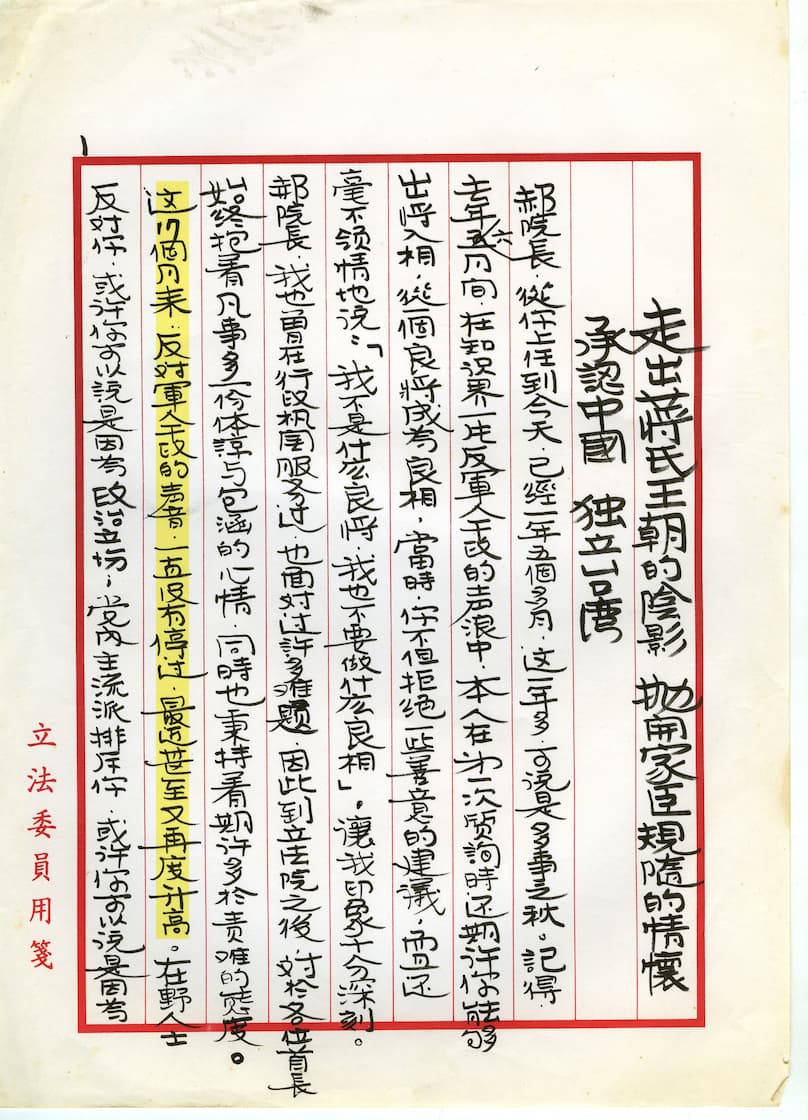 走出蔣氏王朝的陰影 拋開家臣規隨的情懷
承認中國 独立台湾
郝院長,從你上任到今天,已經一年五個多月,这一年多,可說是多事之秋。記得,
去年五六月间,在知识界一片反軍人干政的声浪中,本人在第一次质詢時还期许你能够
出將入相,從一個良將成為良相,當時,你不但拒絕一些善意的建議,而且还
毫不领情地说:「我不是什么良將,我也不要做什么良相」。讓我印象十分深刻。
郝院長,我也曾在行政机関服务过,也面对过許多难題,因此到立法院之後,对於各位首長
始終抱着凡事多一份体諒与包涵的心情,同時也秉持着期许多於责难的態度。
这17個月来,反对軍人干政的声音,一直没有停过,最近甚至又再度升高。在野人士
反对你,或许你可以說是因為政治立场;党内主流派排斥你,或许你可以说是因為
1
立法委員用箋